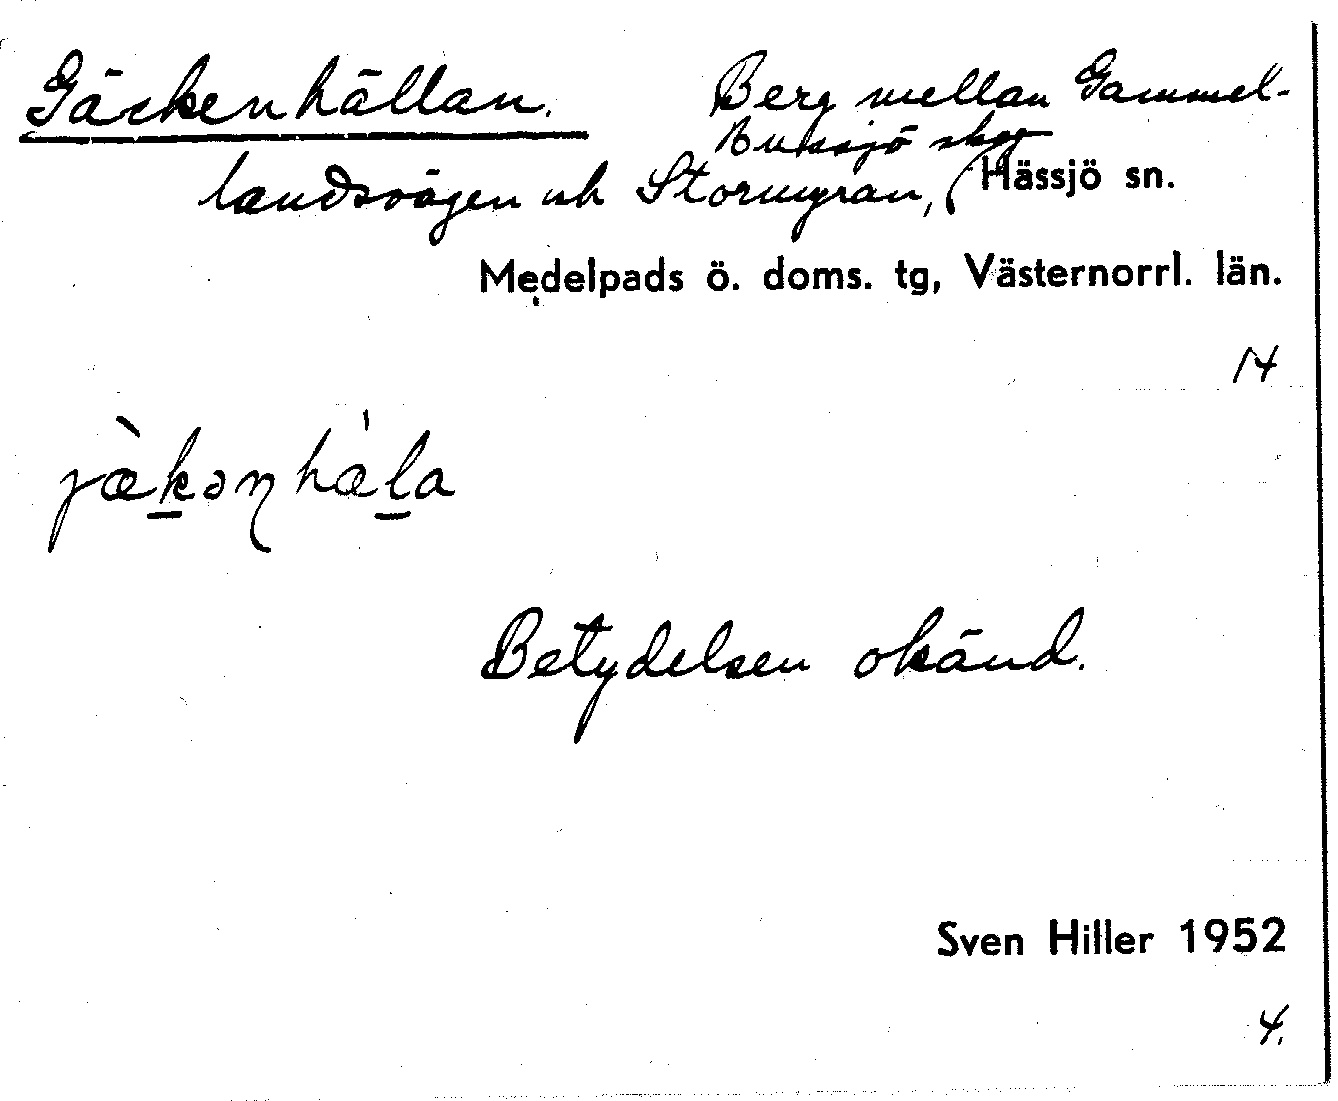 Gäckenhällan. Berg mellan Gammel-
landsvägen och Stormyran, (Bussjö skog
Hässjö sn.
Medelpads ö. doms. tg, Västernorrl. län.
14
jækəŋhæla
Betydelsen okänd.
Sven Hiller 1952
4.